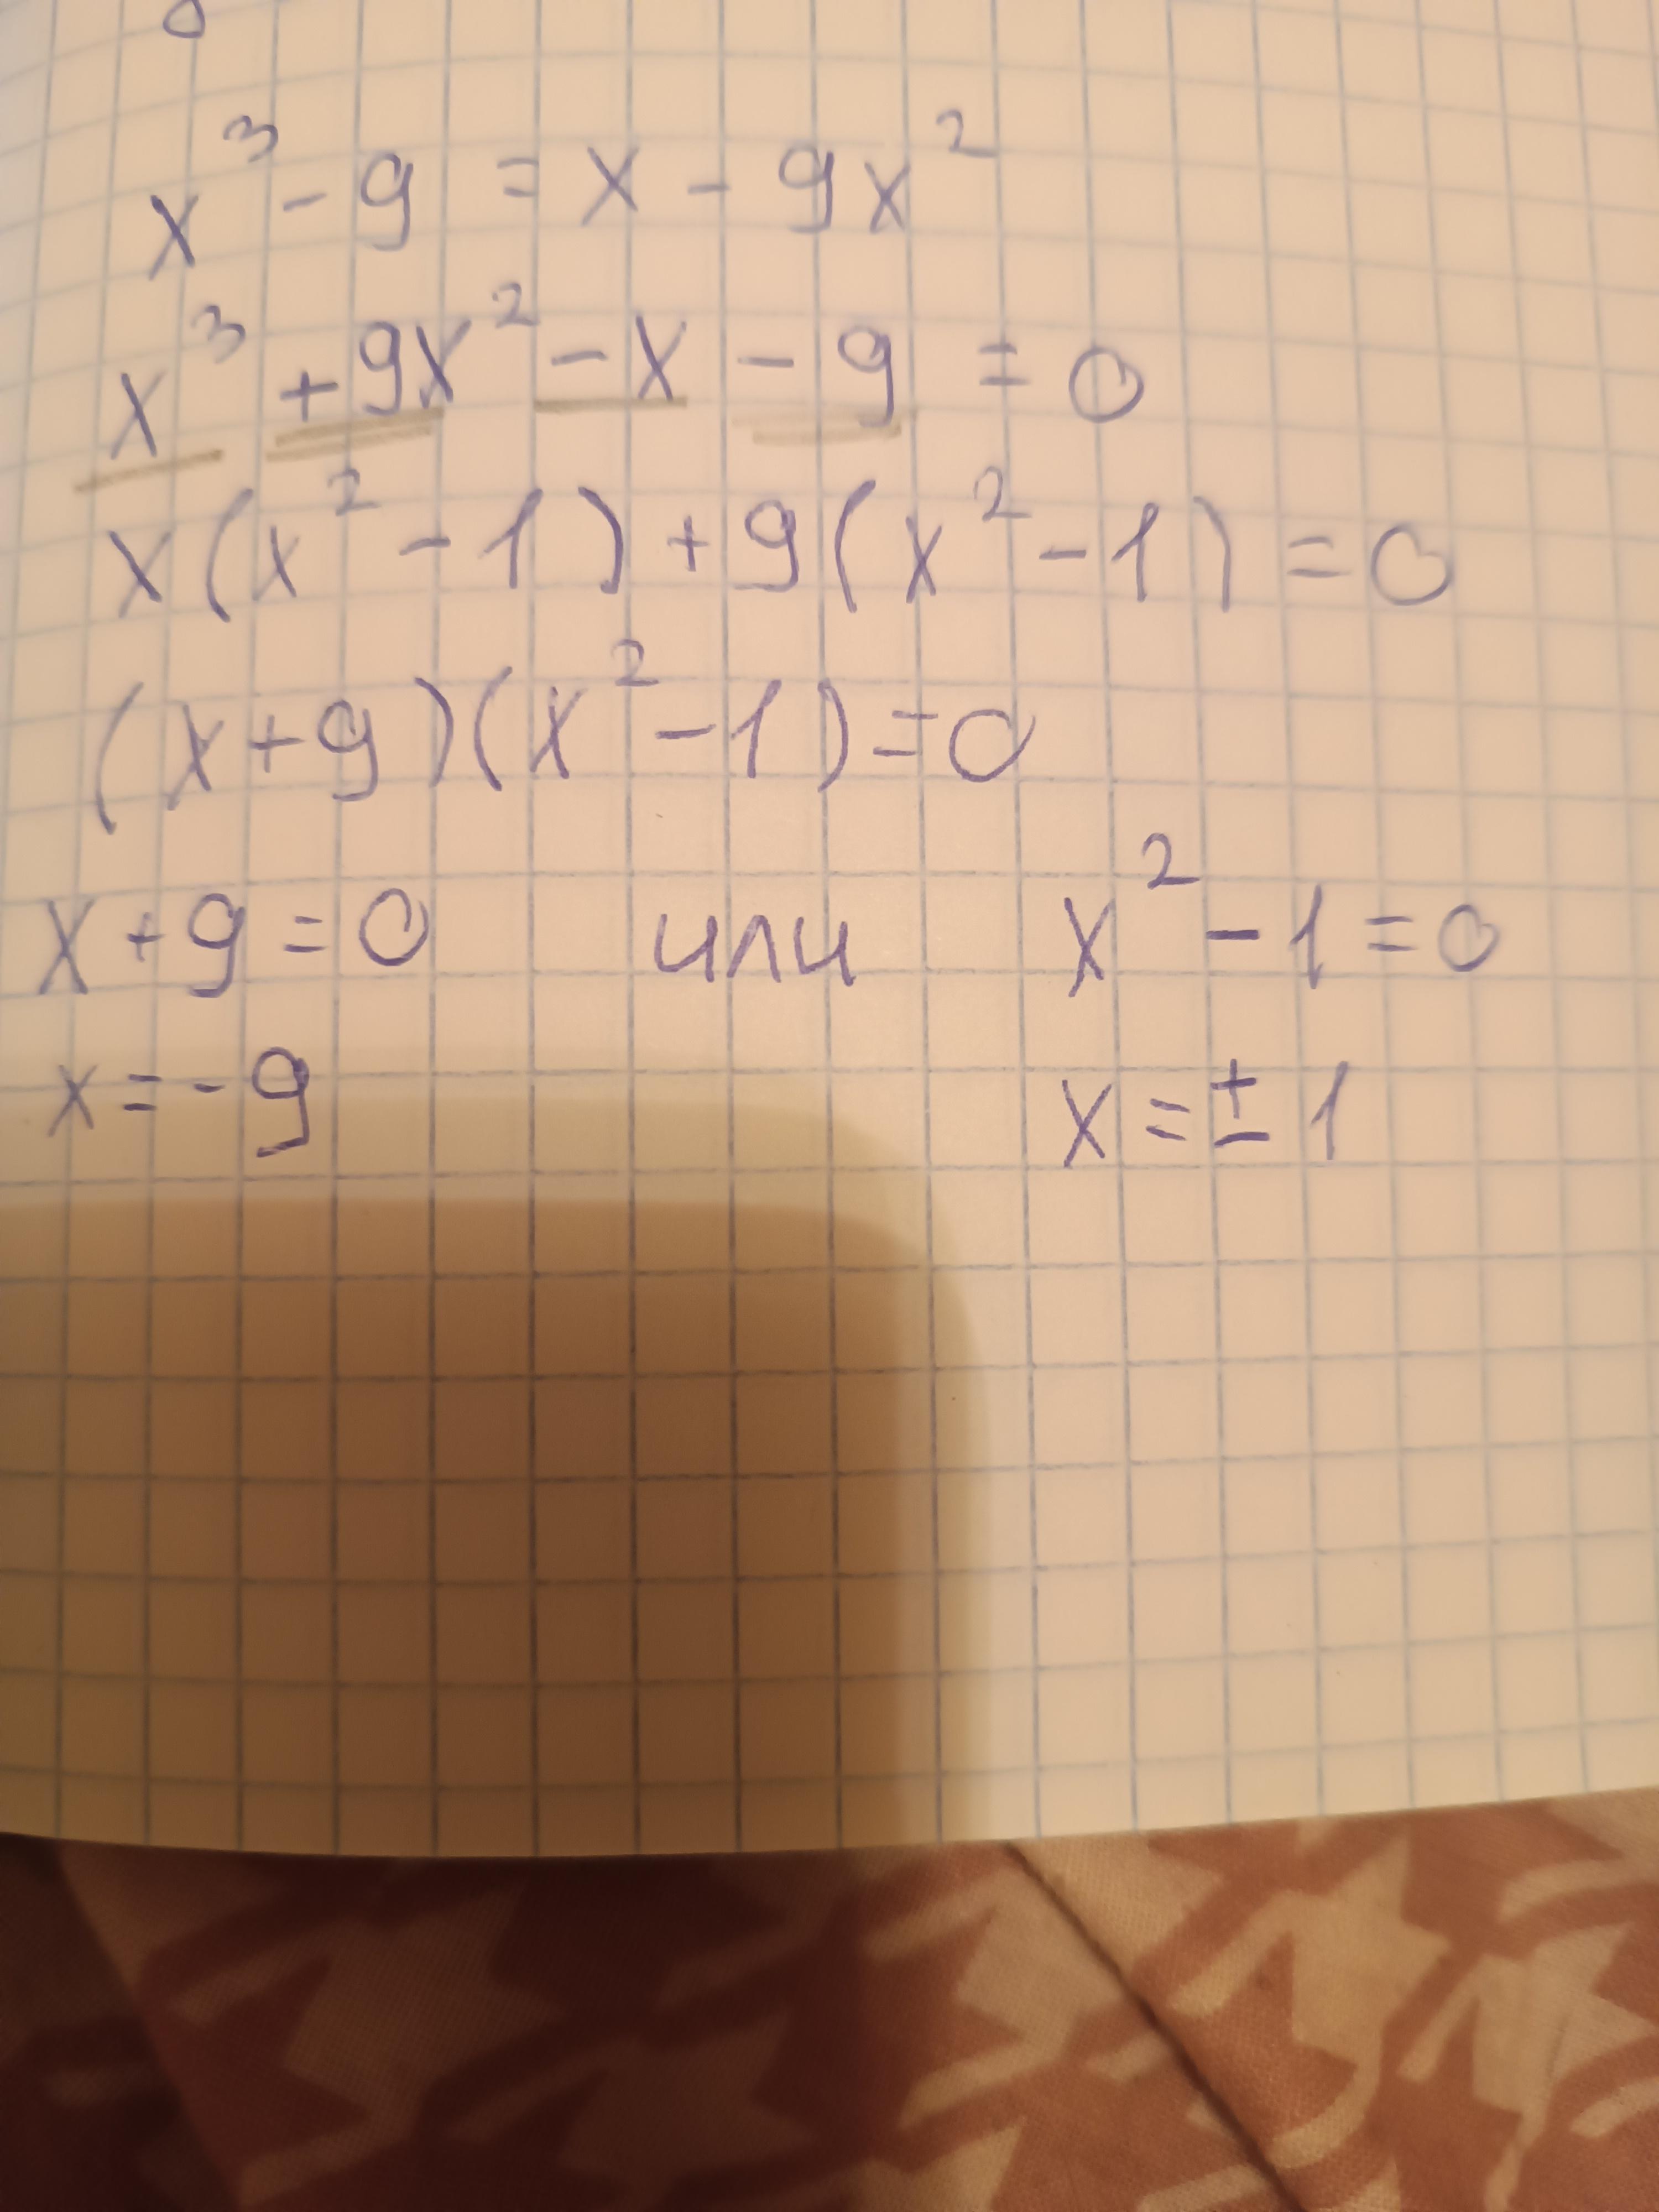 x³ - 9 = x - 9x²
x³ + 9x² - x - 9 = 0
x(x² - 1) + 9(x² - 1) = 0
(x + 9)(x² - 1) = 0
x + 9 = 0 или x² - 1 = 0
x = - 9 x = ± 1